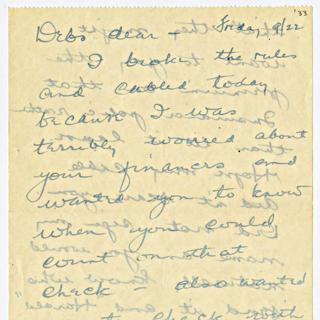 '33
Debs dear – Friday, 9/22
I broke the rules
and cabled today
because I was
terribly worried about
your finances and
wanted you to know
when you could
count on that
check – also wanted
to check with